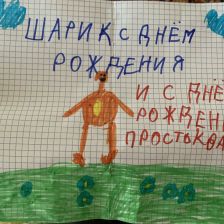 ШАРИК С ДНЁМ
РОЖДЕНИЯ
И С ДНЁ
РОЖДЕНИ
ПРОСТОКВА